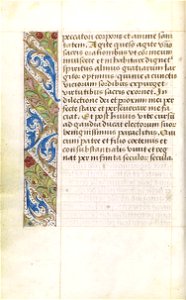 peccatori corporis et anime sani
tatem. Agite queso agite vris
sacris orationibus ut cor meum
inuisere et inhabitare dignet
spiritalis almus gratiarum lar
gitor optimus qui me a cunctis
viciorum sordibus expurget
virtutibus sacris exornet. In
dilectione dei et proximi mei per
fecte stare et perseuerare me fa
ciat. Et post huius vite cursum
ad gaudia ducat electorum suorum
benignissimus paraclitus. Qui
cum patre et filio coeternus et
consubstantialis viuit et reg
nat per infinita seculorum secula.